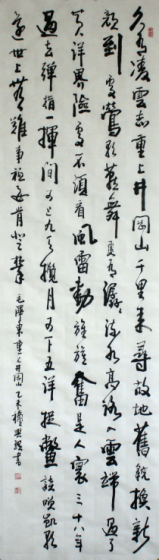 久有凌雲志重上井岡山千里來尋故地舊貌換新
顏到處鶯歌燕舞更有潺潺流水高路入雲端過了
黃洋界險處不須看風雷動旌旗奮是人寰三十八年
過去彈指一揮間可上九天攬月可下五洋捉鱉談笑凱歌
還世上無難事只要肯登攀 毛澤東重上井岡 書